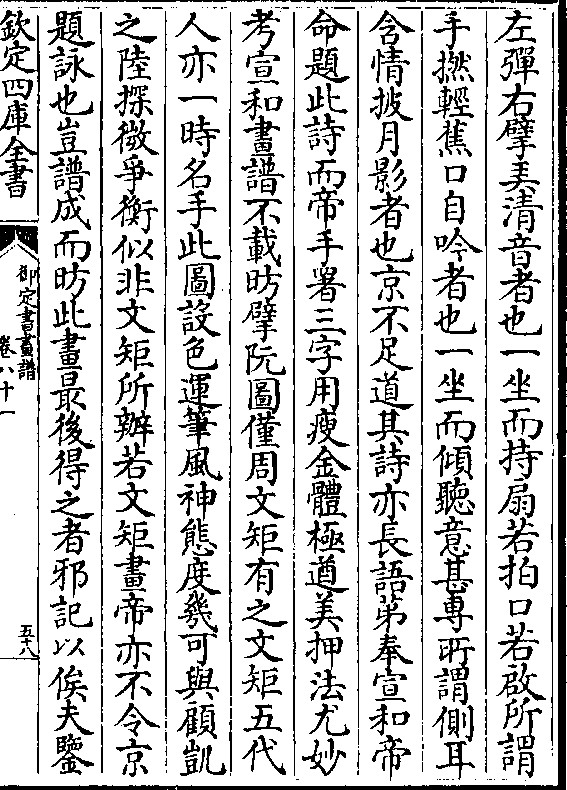 左彈右擘美清音者也一坐而持扇若拍口若啟所謂
手撚輕蕉口自吟者也一坐而傾聽意甚專所謂側耳
含情披月影者也京不足道其詩亦長語第奉宣和帝
命題此詩而帝手署三字用瘦金體極遒美押法尤妙
考宣和畫譜不載昉擘阮圖僅周文矩有之文矩五代
人亦一時名手此圖設色運筆風神態度㡬可與顧凱
之陸探微爭衡似非文矩所辦若文矩畫帝亦不令京
題詠也豈譜成而昉此畫最後得之者邪記以俟夫鑒
欽定四庫全書
御定書畫譜
卷八十一
五十八